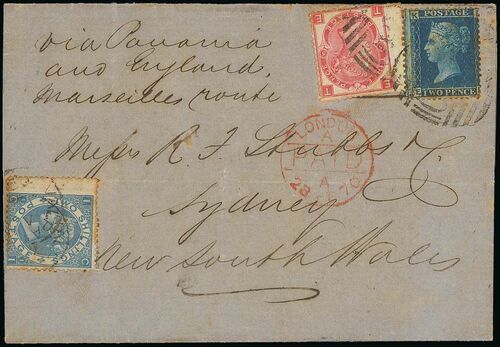 via Panama
and England,
Marseilles route
POSTAGE
TWO PENCE
LONDON
A
PAID
28
70
Messrs R. F. Stubbs & C
Sydney
New South Wales
POSTAGE TWO SHILLINGS